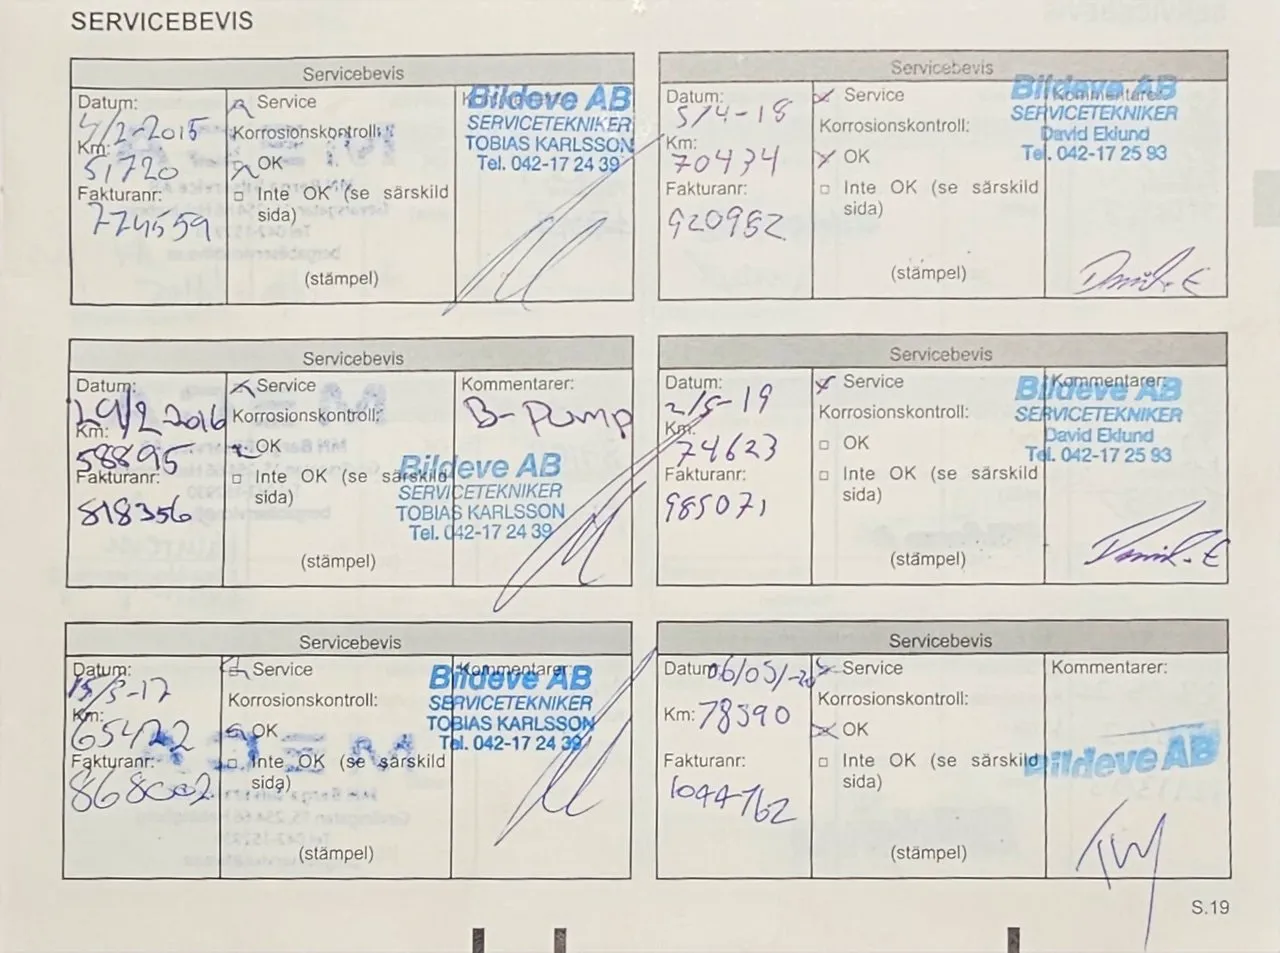 SERVICEBEVIS
Servicebevis
Datum:
4/2-2015
Km:
51720
Fakturanr:
774559
Service
Korrosionskontroll:
OK
□ Inte OK (se särskild
sida)
(stämpel)
Bildeve AB
SERVICETEKNIKER
TOBIAS KARLSSON
Tel. 042-17 24 39
Servicebevis
Datum:
5/4-18
Km:
70434
Fakturanr:
920952
Service
Korrosionskontroll:
OK
□ Inte OK (se särskild
sida)
(stämpel)
Kommentarer:
Bildeve AB
SERVICETEKNIKER
David Eklund
Tel. 042-17 25 93
David.E
Servicebevis
Datum:
29/2 2016
Km:
58895
Fakturanr:
818356
Service
Korrosionskontroll:
OK
□ Inte OK (se särskild
sida)
(stämpel)
Kommentarer:
B-Pump
Bildeve AB
SERVICETEKNIKER
TOBIAS KARLSSON
Tel. 042-17 24 39
Servicebevis
Datum:
2/5-19
Km:
74623
Fakturanr:
985071
Service
Korrosionskontroll:
□ OK
□ Inte OK (se särskild
sida)
(stämpel)
Kommentarer:
Bildeve AB
SERVICETEKNIKER
David Eklund
Tel. 042-17 25 93
David.E
Servicebevis
Datum:
Km:
65422
Fakturanr:
868002
Service
Korrosionskontroll:
OK
□ Inte OK (se särskild
sida)
(stämpel)
Kommentarer:
Bildeve AB
SERVICETEKNIKER
TOBIAS KARLSSON
Tel. 042-17 24 39
Servicebevis
Datum: 06/05/-20
Km: 78390
Fakturanr:
1044762
Service
Korrosionskontroll:
OK
□ Inte OK (se särskild
sida)
(stämpel)
Kommentarer:
Bildeve AB
S.19